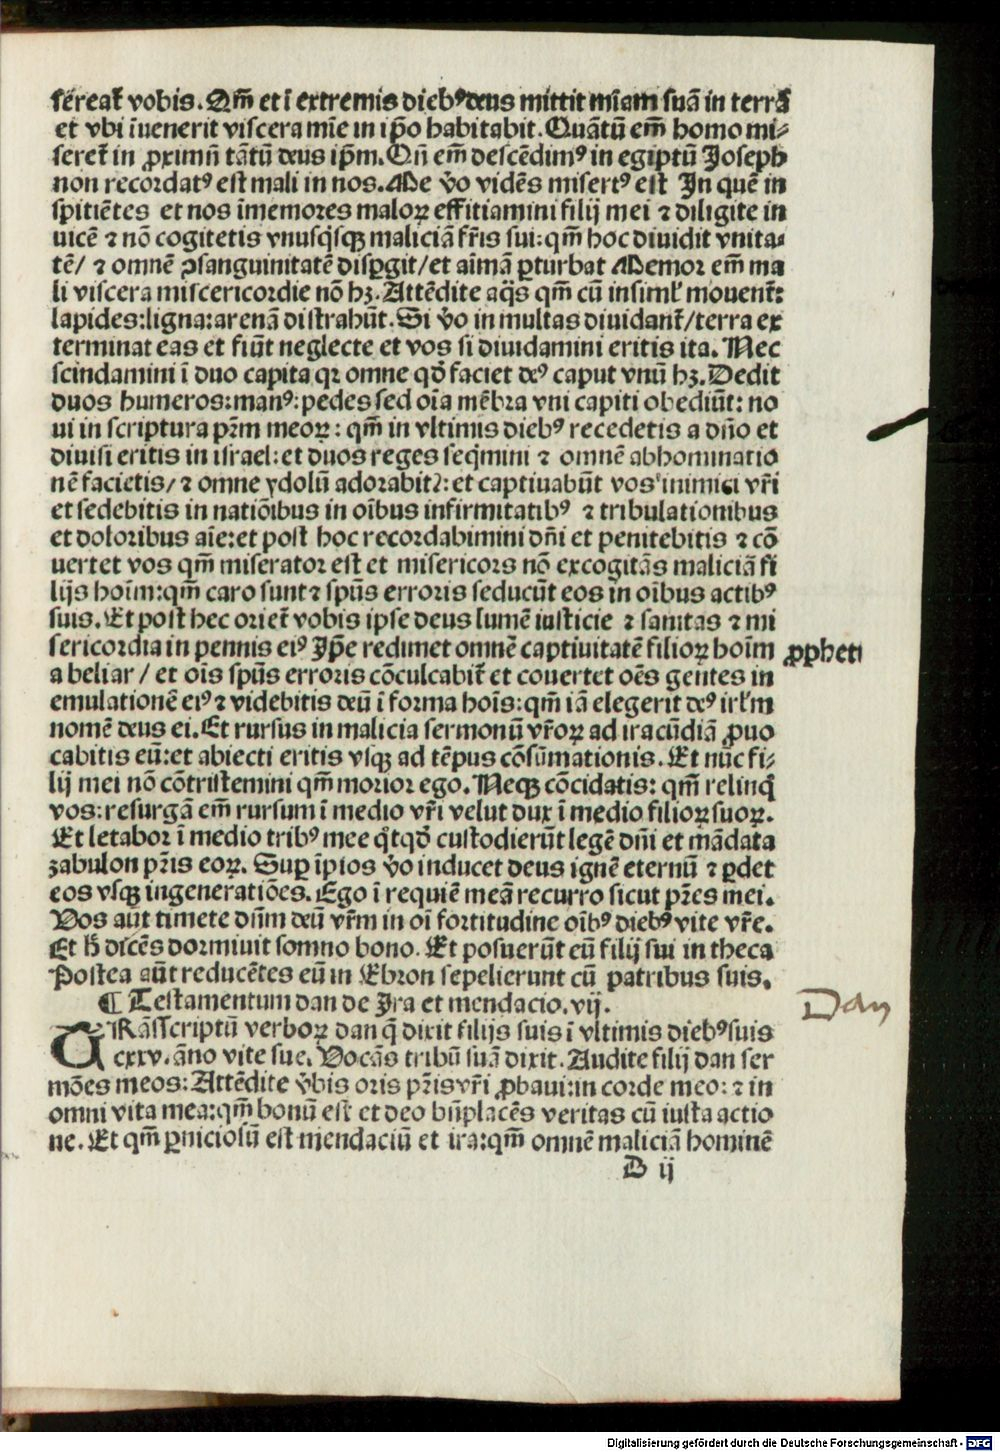 sẽreat̃ vobis. Qm̃ et ĩ extremis diebꝰ deus mittit mĩam suã in terrã
et vbi ĩuenerit viscera mĩe in ip̃o habitabit. Quãtũ em̃ homo mi⸗
seret̃ in ꝓximũ tãtũ deus ip̃m. Qñ em̃ descẽdimꝰ in egiptũ Joseph
non recordatꝰ est mali in nos. Me ṽo vidẽs misertꝰ est In quẽ in
spitiẽtes et nos ĩmemores maloꝝ effitiamini filij mei ⁊ diligite in
uicẽ ⁊ nõ cogitetis vnusq̃sqꝫ maliciã fr̃is sui: qm̃ hoc diuidit vnita⸗
tẽ/ ⁊ omnẽ ꝯsanguinitatẽ disꝑgit/ et aĩmã ꝑturbat Memor em̃ ma
li viscera miscericordie nõ hꝫ. Attẽdite aq̃s qm̃ cũ insiml̃ mouent̃:
lapides: ligna: arenã distrahũt. Si ṽo in multas diuidant̃/ terra ex
terminat eas et fiũt neglecte et vos si diuidamini eritis ita. Nec
scindamini ĩ duo capita qꝛ omne qd̃ faciet deꝰ caput vnũ hꝫ. Dedit
duos humeros: manꝰ: pedes sed oĩa mẽbra vni capiti obediũt: no
ui in scriptura pr̃m meoꝝ: qm̃ in vltimis diebꝰ recedetis a dño et
diuisi eritis in israel: et duos reges seq̃mini ⁊ omnẽ abhominatio
nẽ facietis/ ⁊ omne ydolũ adorabitꝭ: et captiuabũt vos inimici vr̃i
et sedebitis in natiõibus in oĩbus infirmitatibꝰ ⁊ tribulationibus
et doloribus aĩe: et post hoc recordabimini dñi et penitebitis ⁊ cõ
uertet vos qm̃ miserator est et misericors nõ excogitãs maliciã fi
lijs hoĩm: qm̃ caro sunt ⁊ sp̃us erroris seducũt eos in oĩbus actibꝰ
suis. Et post hec oriet̃ vobis ipse deus lumẽ iusticie ⁊ sanitas ⁊ mi
sericordia in pennis eiꝰ Jp̃e redimet omnẽ captiuitatẽ filioꝝ hoĩm ꝓpheti
a beliar / et oĩs sp̃us erroris cõculcabit̃ et couertet oẽs gentes in
emulationẽ eiꝰ ⁊ videbitis deũ ĩ forma hoĩs: qm̃ iã elegerit deꝰ irl̃m
nomẽ deus ei. Et rursus in malicia sermonũ vr̃oꝝ ad iracũdiã ꝓuo
cabitis eũ: et abiecti eritis vsqꝫ ad tẽpus cõsũmationis. Et nũc fi⸗
lij mei nõ cõtristemini qm̃ morior ego. Neqꝫ cõcidatis: qm̃ relinq̃
vos: resurgã em̃ rursum ĩ medio vr̃i velut dux ĩ medio filioꝝ suoꝝ.
Et letabor ĩ medio tribꝰ mee q̃tqd̃ custodierũt legẽ dñi et mãdata
zabulon pr̃is eoꝝ. Suꝑ ĩpios ṽo inducet deus ignẽ eternũ ⁊ ꝑdet
eos vsqꝫ ingeneratiões. Ego ĩ requiẽ meã recurro sicut pr̃es mei.
Vos aũt timete dñm deũ vr̃m in oĩ fortitudine oĩbꝰ diebꝰ vite vr̃e.
Et h̃ dicẽs dormiuit somno bono. Et posuerũt eũ filij sui in theca
Postea aũt reducẽtes eũ in Ebron sepelierunt cũ patribus suis.
¶ Testamentum dan de Jra et mendacio. vij.
Dan
TRãsscriptũ verboꝝ dan q̃ dixit filijs suis ĩ vltimis diebꝰ suis
cxxv. ãno vite sue. Vocãs tribũ suã dixit. Audite filij dan ser
mões meos: Attẽdite ṽbis oris pr̃is vr̃i ꝓbaui: in corde meo: ⁊ in
omni vita mea: qm̃ bonũ est et deo bñplacẽs veritas cũ iusta actio
ne. Et qm̃ ꝑniciosũ est mendaciũ et ira: qm̃ omnẽ maliciã hominẽ
D ij
Digitalisierung gefördert durch die Deutsche Forschungsgemeinschaft - DFG